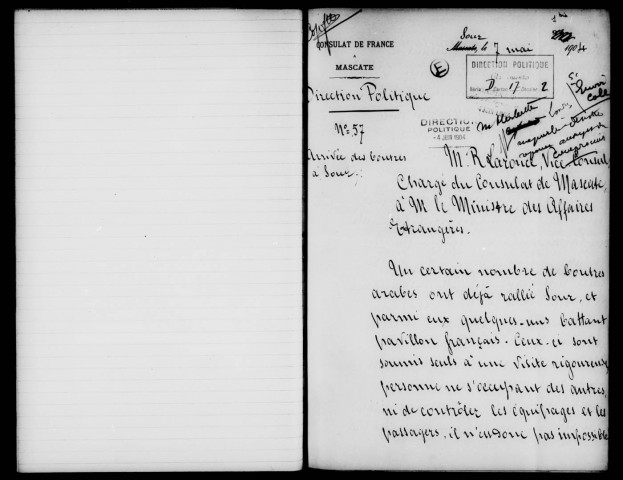 CONSULAT DE FRANCE
À
MASCATE
Sour
Mascate, le 7 mai 1904
DIRECTION POLITIQUE
D 17 2
E
Direction Politique
N° 57
DIRECTION
POLITIQUE
-4 JUIN 1904
Arrivée des boutres
à Sour.
M. R. Laronce, Vice-Consul
Chargé du Consulat de Mascate,
à M. le Ministre des Affaires
Etrangères.
Un certain nombre de boutres
arabes ont déjà rallié Sour, et
parmi eux quelques-uns battant
pavillon français. Ceux-ci sont
soumis seuls à une visite rigoureuse,
personne ne s'occupant des autres,
ni de contrôler les équipages et les
passagers, il n'en donc pas impossible